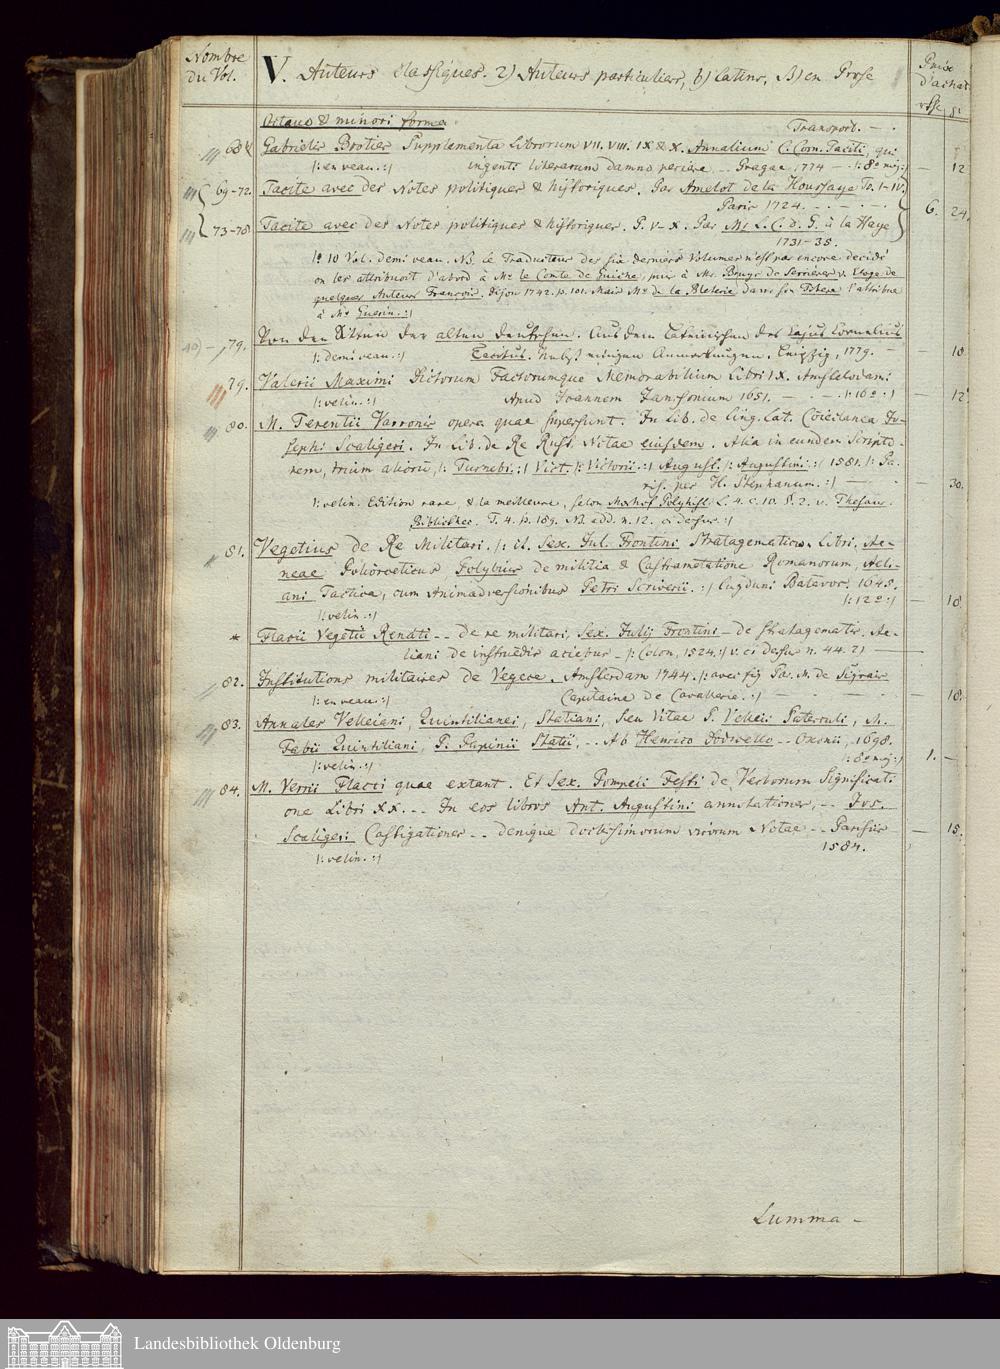 Nombre
du Vol.
V. Auteurs classiques. 2) Auteurs particuliers, b) latins, β) en Prose
Prix
d'achat
rthl. gr.
Octavo & minori forma
Transport. — .
68. Gabrielis Brotier Supplementa Librorum VII. VIII. IX & X. Annalium C. Corn. Taciti, qui
|: en veau. :| ingenti literarum damno periere. -- Pragae, 1774 — |: 8º maj :| — 12
69-72. Tacite avec des Notes politiques & historiques. Par Amelot de la Houssaye To. I-IV.
Paris 1724. - - - - 6. 24.
73-78. Tacite avec des Notes politiques & historiques. P. V-X. Par Mr L. C. d. G. à la Haye
1731-35.
|: 10 Vol. demi veau. NB. le Traducteur des six derniers Volumes n'est pas encore decidé
on les attribuoit d'abord à Mr le Comte de Guiche, puis à Mr. Bruys de Serrieres v. Eloge de
quelques Auteurs François. Dijon 1742. p. 101. Mais Mr de la Bleterie dans son Tibere l'attribue
à Mr Guerin. :|
79. Von den Sitten der alten Deutschen. Aus dem Lateinischen des Cajus Cornelius
|: demi veau. :| Tacitus. Nebst einigen Anmerkungen. Leipzig, 1779. — — 10
79. Valerii Maximi Dictorum Factorumque Memorabilium Libri IX. Amstelodami
|: velin. :| Apud Joannem Janssonium 1651. — — |: 16º :| — 12
80. M. Terentii Varronis opera quae supersunt. In Lib. de Ling. Lat. Coiectanea Jo-
sephi Scaligeri. In Lib. de Re Rust. Notae eiusdem. Alia in eundem Scripto-
rem, trium aliorū, |: Turnebi. :| Vict. |: Victorii. :| August. |: Augustini. :| 1581. |: Pa-
ris. per H. Stephanum. :| — — 30.
|: velin. Edition rare, & la meilleure, selon Morhof Polyhist. L. 4. c. 10. §. 2. v. Thesaur.
Bibliothec. T. 4. p. 189. NB. add. n. 12. ci dessus. :|
81. Vegetius de Re Militari. |: it. Sex. Jul. Frontini Stratagematicōn Libri, Ae-
neae Poliorceticus, Polybius de militia & Castrametatione Romanorum, Aeli-
ani Tactica, cum Animadversionibus Petri Scriverii. :| Lugduni Batavor. 1645.
|: velin :| |: 12º :| — 18.
* Flavii Vegetii Renati -- de re militari, Sex. Julij Frontini — de stratagematis. Ae-
liani de instruēdis aciebus — |: Colon. 1524. :| v. ci dessus n. 44. 2) —
82. Institutions militaires de Vegece. Amsterdam 1744. |: avec fig Par M. de Sigrais
|: en veau :| Capitaine de Cavallerie. :| — — — 18.
83. Annales Velleiani, Quintilianei, Statiani, seu Vitae P. Velleii Paterculi, M.
Fabii Quintiliani, P. Papinii Statii, -- Ab Henrico Dodwello -- Oxonii, 1698.
|: velin :| |: 8º maj :| 1. —
84. M. Verrii Flacci quae extant. Et Sex. Pompeii Festi de Verborum Significati-
one Libri XX. -- In eos libros Ant. Augustini annotationes, -- Jos.
Scaligeri Castigationes -- denique doctissimorum virorum Notae -- Parisiis — 15.
|: velin. :| 1584.
Summa —
Landesbibliothek Oldenburg